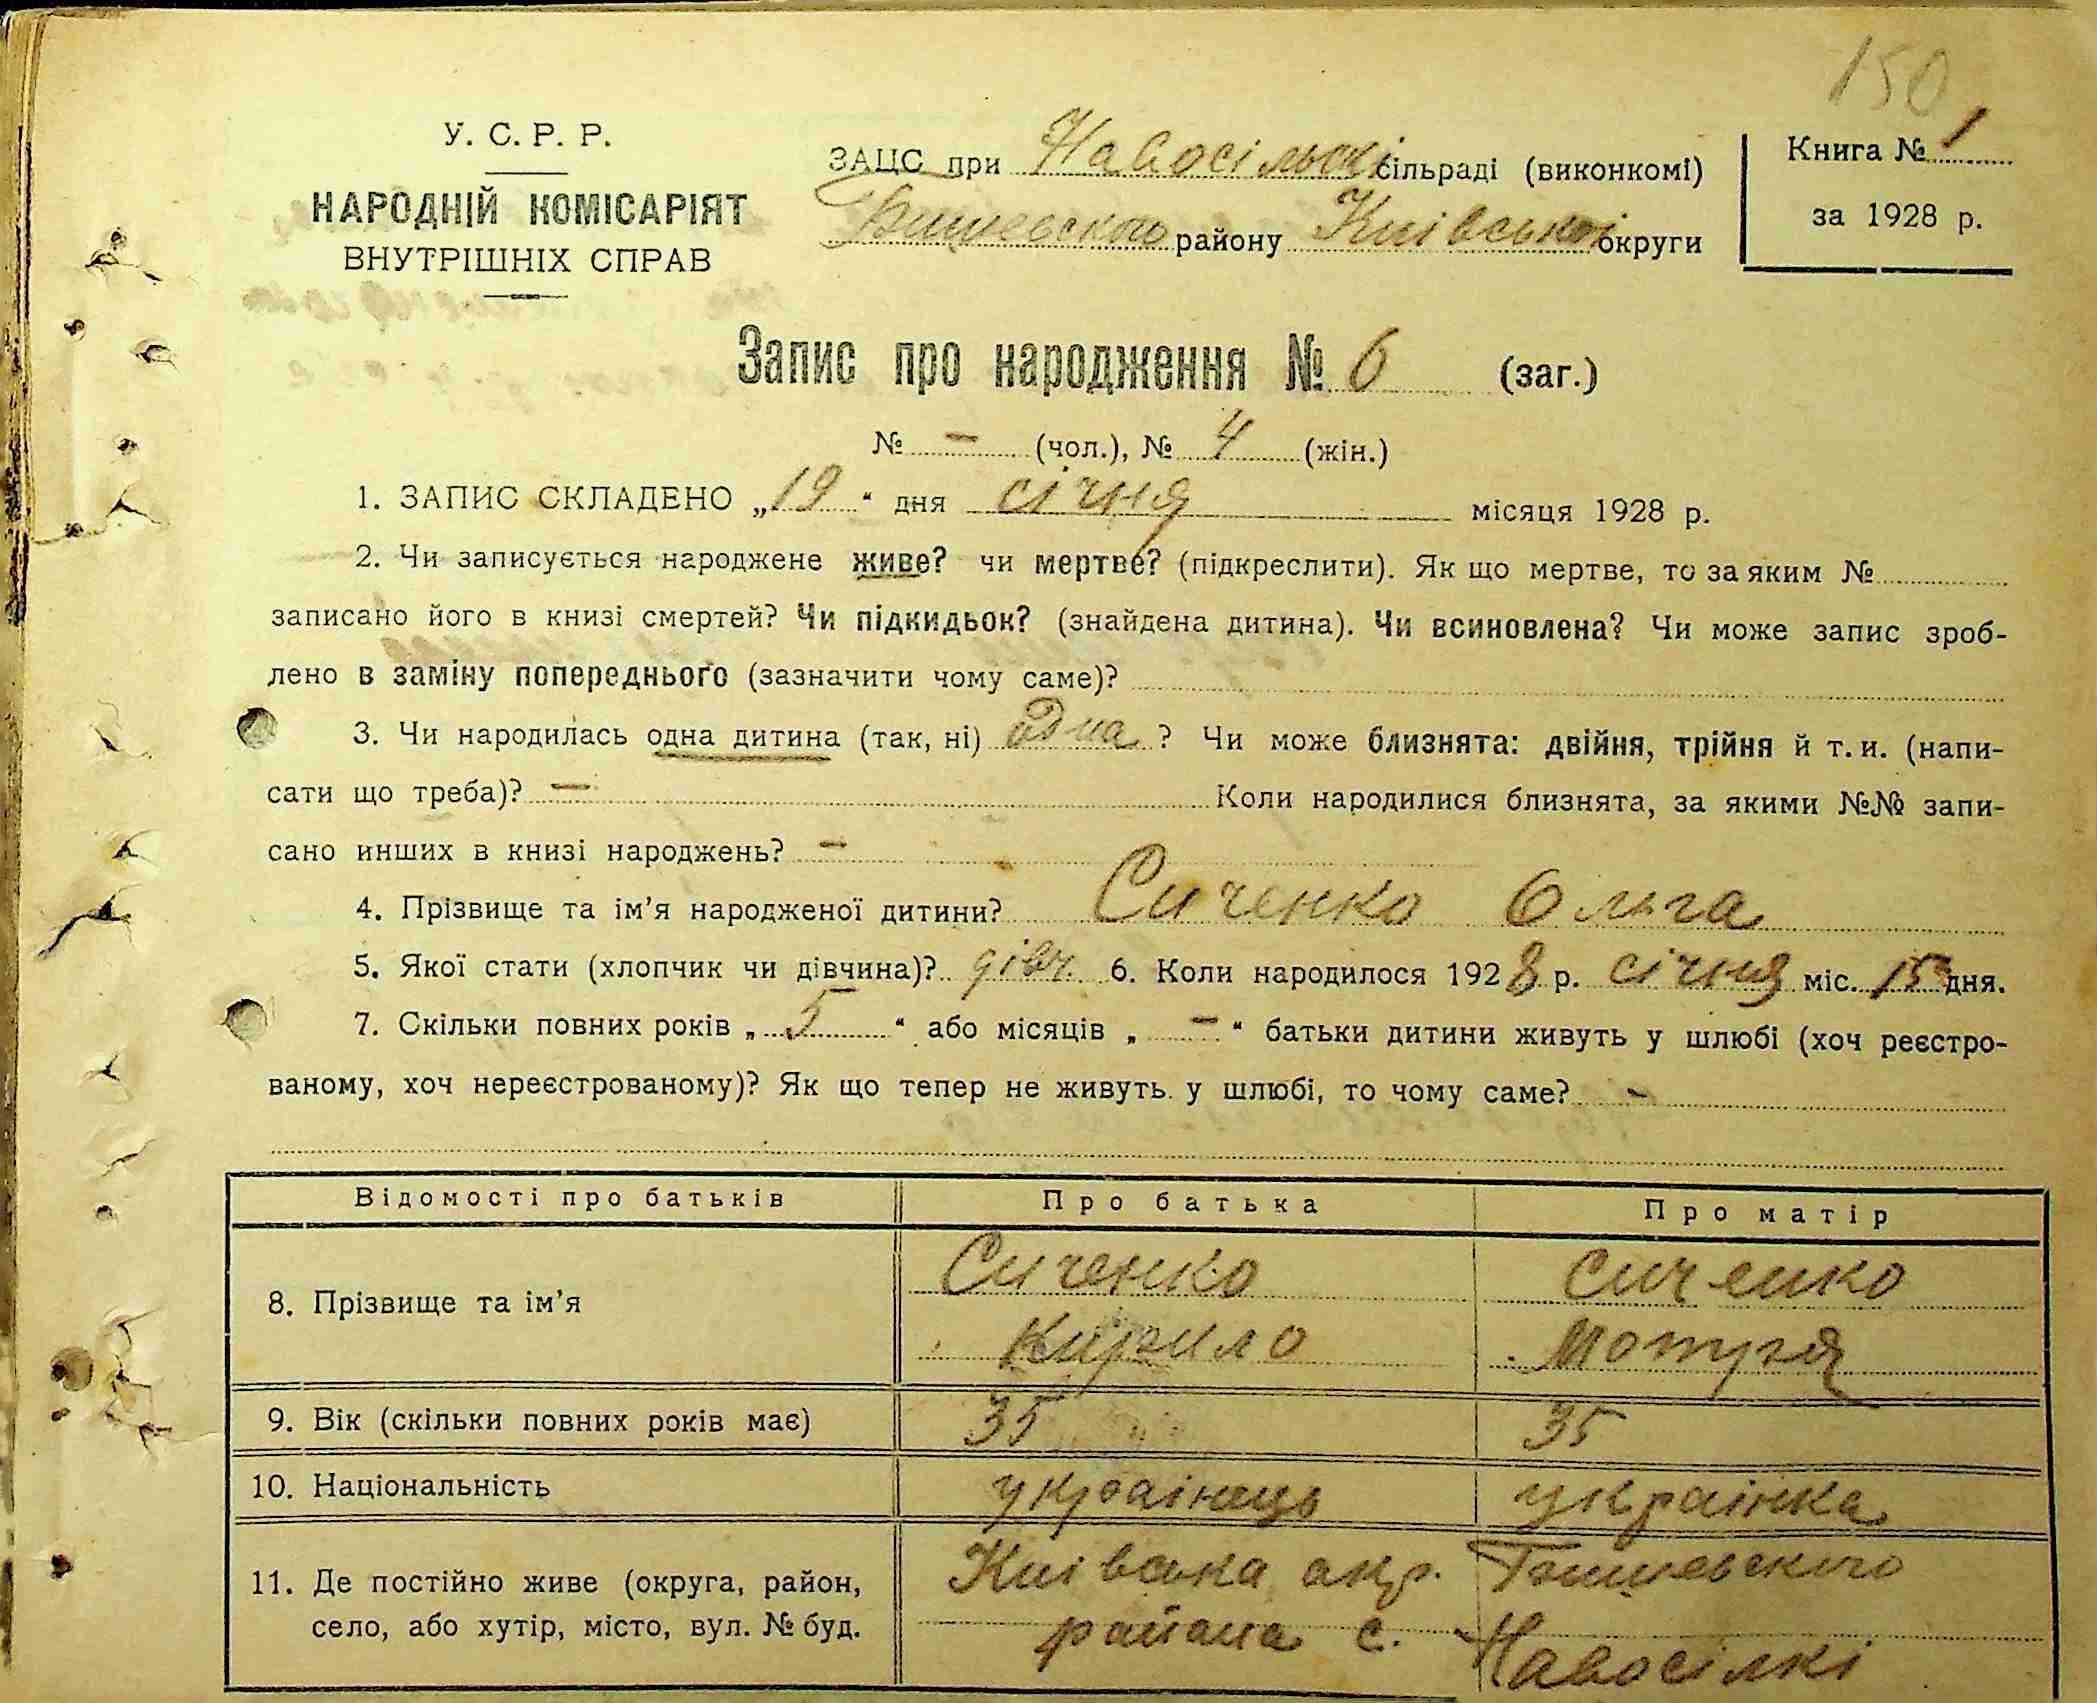 150
У. С. Р. Р.
НАРОДНІЙ КОМІСАРІЯТ
ВНУТРІШНІХ СПРАВ
ЗАЦС при Навосільскі сільраді (виконкомі)
Бишевского району Киівськоі округи
Книга № 1
за 1928 р.
Запис про народження № 6 (заг.)
№ — (чол.), № 4 (жін.)
1. ЗАПИС СКЛАДЕНО „19“ дня січня місяця 1928 р.
2. Чи записується народжене живе? чи мертве? (підкреслити). Як що мертве, то за яким №
записано його в книзі смертей? Чи підкидьок? (знайдена дитина). Чи всиновлена? Чи може запис зроб-
лено в заміну попереднього (зазначити чому саме)?
3. Чи народилась одна дитина (так, ні) одна? Чи може близнята: двійня, трійня й т. и. (напи-
сати що треба)? — Коли народилися близнята, за якими №№ запи-
сано инших в книзі народжень? —
4. Прізвище та ім’я народженої дитини? Сиченко Ольга
5. Якої стати (хлопчик чи дівчина)? дівч. 6. Коли народилося 1928 р. січня міс. 15 дня.
7. Скільки повних років „5“ або місяців „—“ батьки дитини живуть у шлюбі (хоч реєстро-
ваному, хоч нереєстрованому)? Як що тепер не живуть у шлюбі, то чому саме? -
Відомості про батьків Про батька Про матір
8. Прізвище та ім’я Сиченко Сиченко
Кирило Мотуря
9. Вік (скільки повних років має) 35 35
10. Національність украінець украінка
11. Де постійно живе (округа, район, Киівська окр. Бишевского
село, або хутір, місто, вул. № буд. района с. Навосілкі